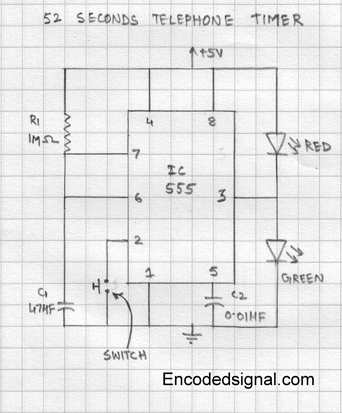 52 SECONDS TELEPHONE TIMER
+5V
R1
1MΩ
4
8
7
IC
555
RED
6
3
2
1
5
C1
47MF
H
C2
0.01MF
GREEN
SWITCH
Encodedsignal.com